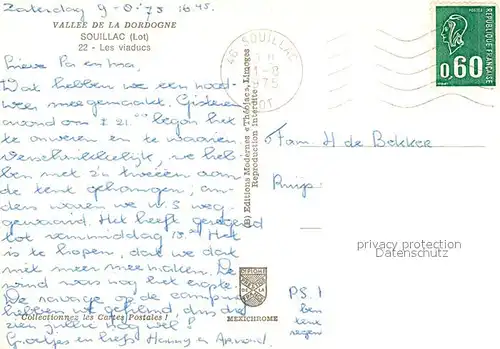 Zaterdag 9-8-75 16.45.
VALLÉE DE LA DORDOGNE
SOUILLAC (Lot)
22 - Les viaducs
Lieve Pa en ma,
Wat hebben we een nood-
weer meegemaakt. Gisteren
avond om ± 21.00 begon het
te onweren en te waaien.
Verschrikkelijk, we heb-
ben met z'n tweeën aan
de tent gehangen; an-
ders waren we n.s weg-
gewaaid. Het heeft geregend
tot vanmiddag 15.00 Het
is te hopen, dat we dat
niet meer meemaken. De
wind was nog het ergste.
De ravage op de camping
hebben we gefilmd, dus die
zien jullie nog wel!
Groetjes en liefs Hanny en
Collectionnez les Cartes Postales !
(B) Editions Modernes «Théojac», Limoges
Reproduction interdite
MEXICHROME
46 SOUILLAC
LOT
RÉPUBLIQUE FRANÇAISE
0,60
POSTES
Fam. H de Bekker
privacy protection
du Client
PS.
ben
tent
regen